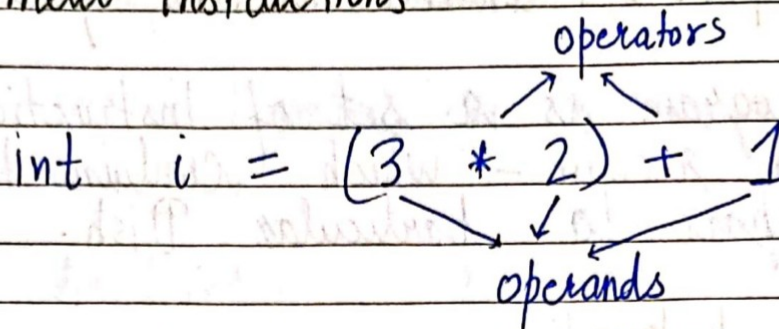 Instructions
operators
int i = (3 * 2) + 1
operands